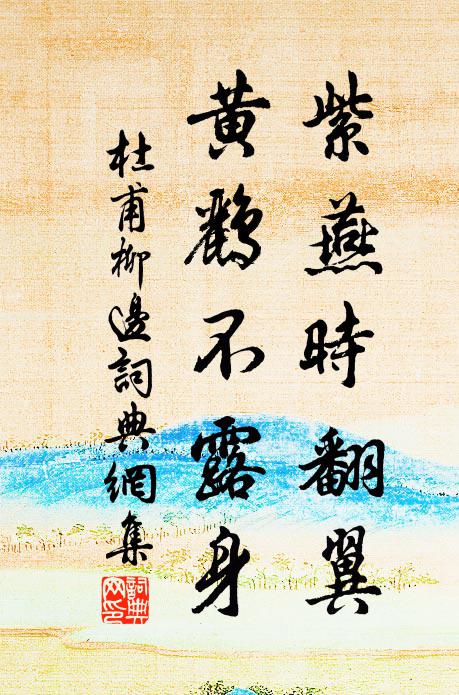 紫燕時翻翼
黄鸝不露身
杜甫柳邊詞典網集
詞典网印